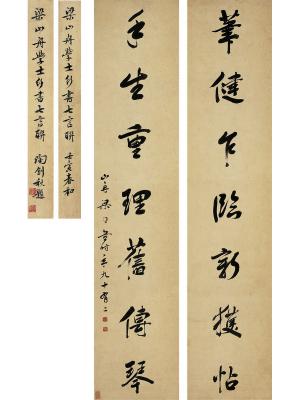 筆健乍臨新獲帖
手生重理舊傳琴
山舟梁同書時年九十有二
梁山舟學士行書七言聯 壬寅春和
梁山舟學士行書七言聯 陶剑秋題